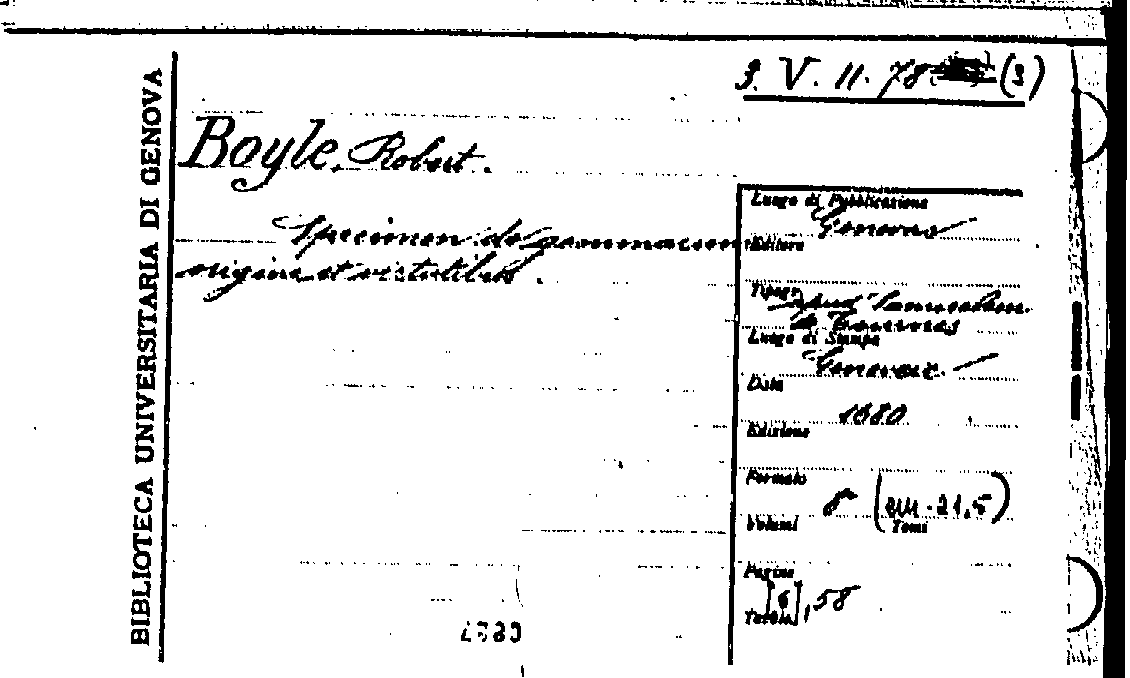 3. V. 11. 78 (3)
BIBLIOTECA UNIVERSITARIA DI GENOVA
Boyle, Robert.
Specimen de gemmarum
origine et virtutibus.
Luogo di Pubblicazione
Genevae
Editore
Tipogr.
apud Samuelem
de Tournes
Luogo di Stampa
Genevae
Data
1680
Edizione
Formato
8° (cm. 21,5)
Volumi Tomi
Pagine
[6], 58
Tavole